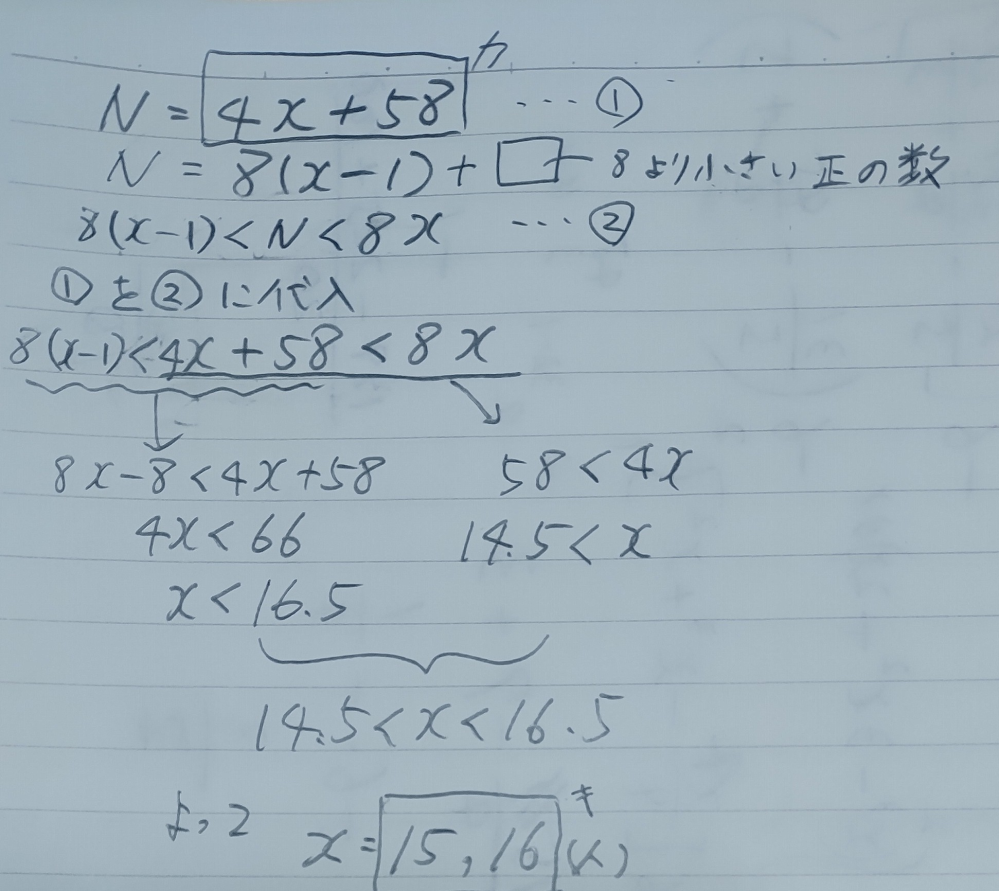 N = 4x+58 カ … ①
N = 8(x-1)+□ 8より小さい正の数
8(x-1)<N<8x … ②
①を②に代入
8(x-1)<4x+58<8x
8x-8<4x+58 58<4x
4x<66 14.5<x
x<16.5
14.5<x<16.5
よって x=15,16 キ (人)